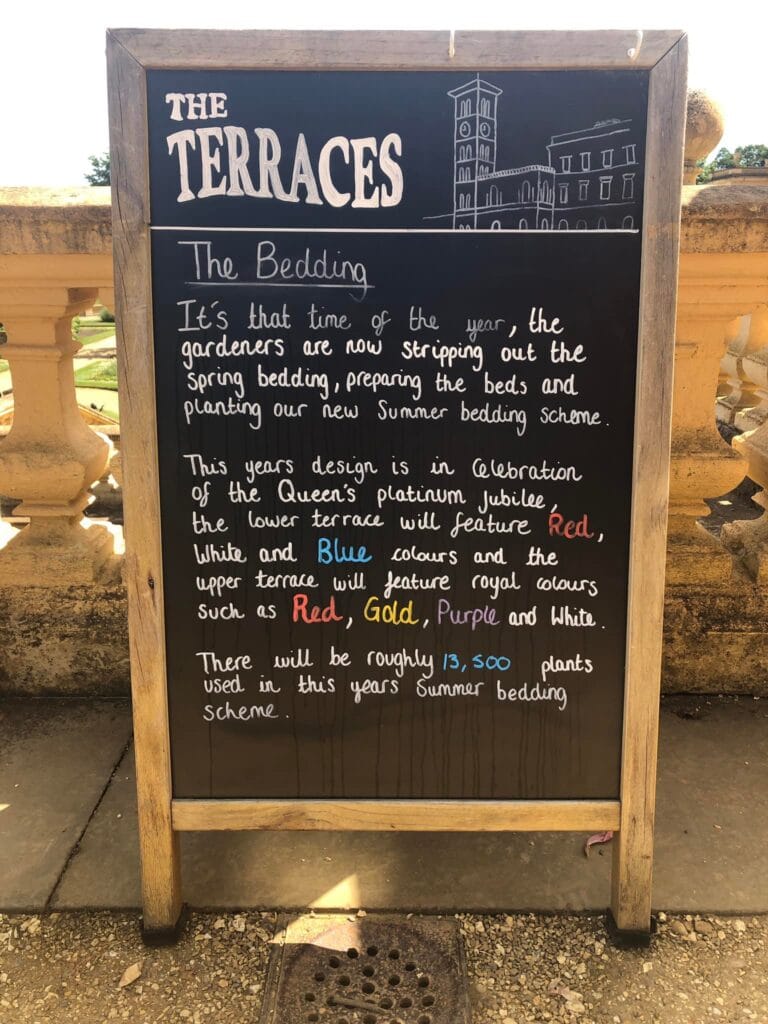 THE
TERRACES
The Bedding
It's that time of the year, the
gardeners are now stripping out the
spring bedding, preparing the beds and
planting our new Summer bedding scheme.
This years design is in Celebration
of the Queen's platinum jubilee,
the lower terrace will feature Red,
White and Blue colours and the
upper terrace will feature royal colours
such as Red, Gold, Purple and White.
There will be roughly 13,500 plants
used in this years Summer bedding
scheme.